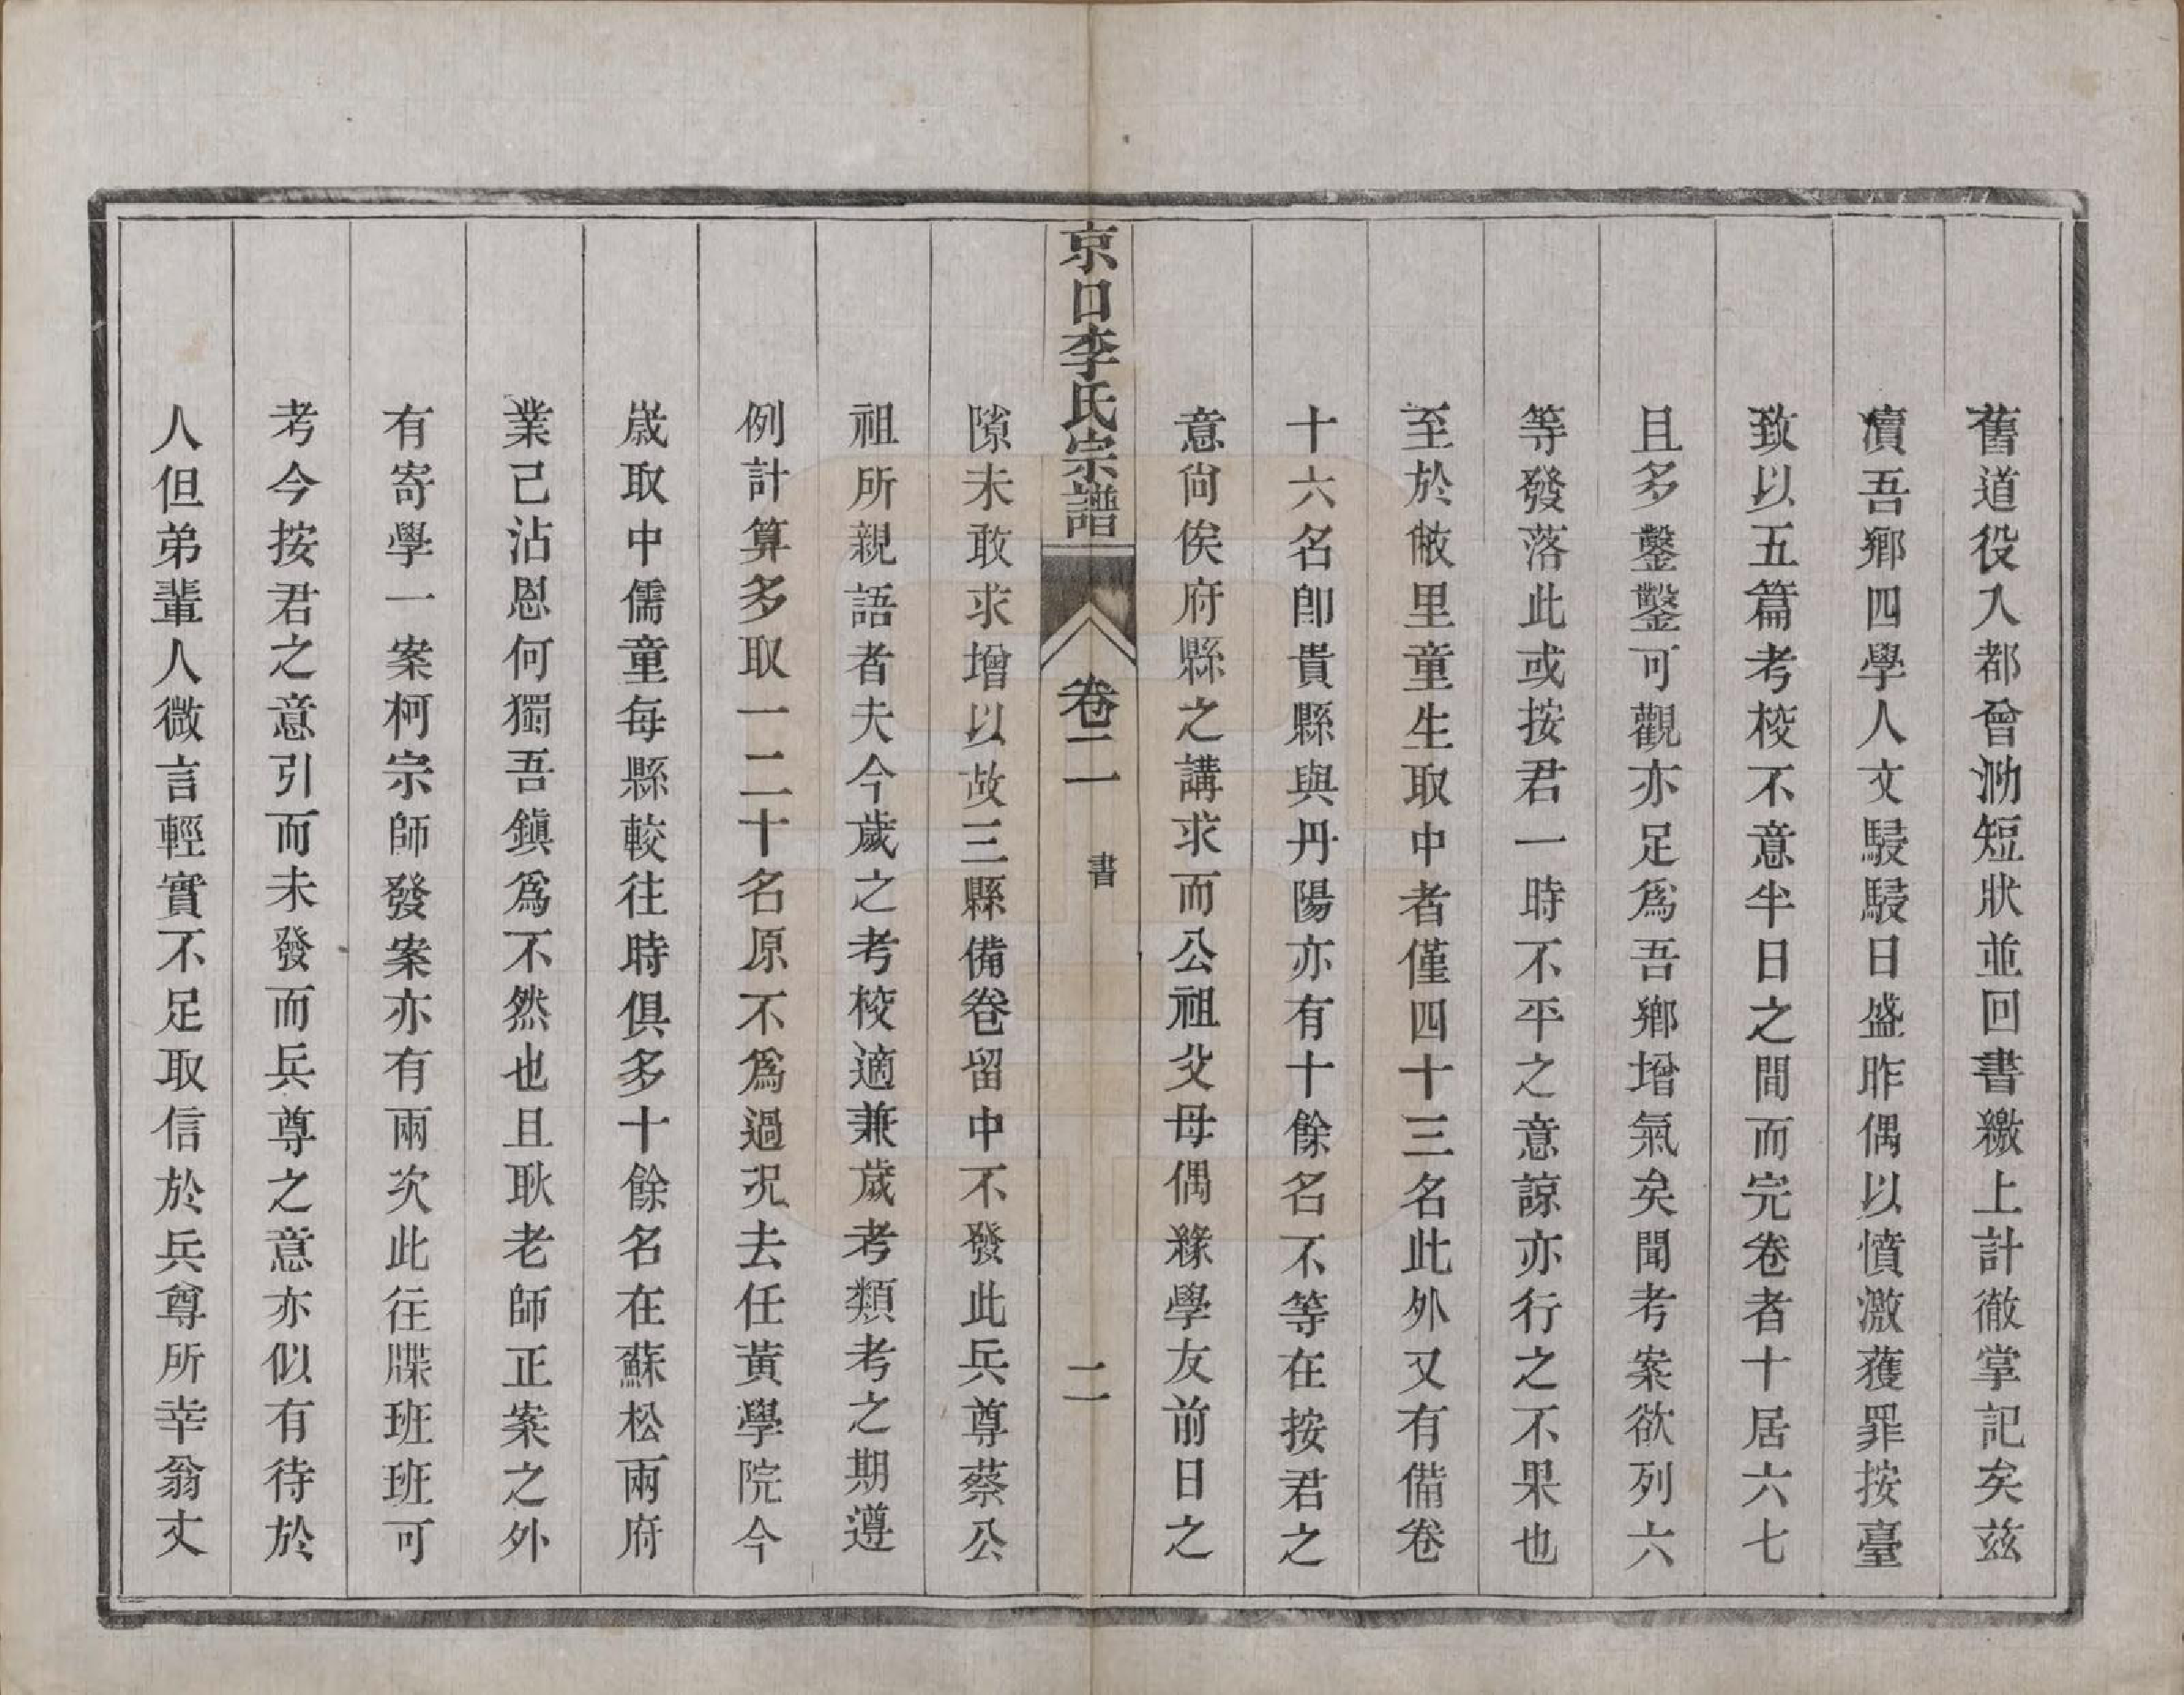 舊道役入都曾泐短狀並回書繳上計徹掌記矣茲
瀆吾鄉四學人文駸駸日盛昨偶以憤激獲罪按臺
致以五篇考校不意半日之間而完卷者十居六七
且多鑿鑿可觀亦足爲吾鄉增氣矣聞考案欲列六
等發落此或按君一時不平之意諒亦行之不果也
至於敝里童生取中者僅四十三名此外又有備卷
十六名卽貴縣與丹陽亦有十餘名不等在按君之
意尙俟府縣之講求而公祖父母偶緣學友前日之
京口李氏宗譜 卷二 書 二
隙未敢求增以故三縣備卷留中不發此兵尊蔡公
祖所親語者夫今歲之考校適兼歲考類考之期遵
例計算多取一二十名原不爲過况去任黃學院今
歲取中儒童每縣較往時俱多十餘名在蘇松兩府
業己沾恩何獨吾鎭爲不然也且耿老師正案之外
有寄學一案柯宗師發案亦有兩次此往牒班班可
考今按君之意引而未發而兵尊之意亦似有待於
人但弟輩人微言輕實不足取信於兵尊所幸翁丈